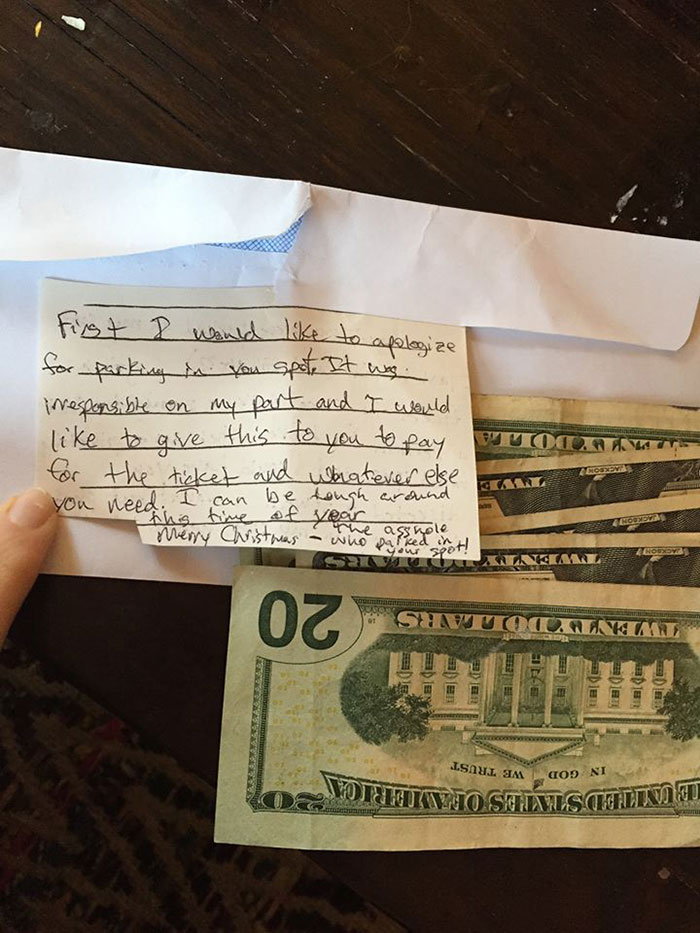 First I would like to apologize
for parking in you spot. It was
irresponsible on my part and I would
like to give this to you to pay
for the ticket and whatever else
you need. I can be tough around
this time of year
Merry Christmas - the asshole
who parked in
your spot!
TWENTY DOLLARS
JACKSON
JACKSON
JACKSON
20
TWENTY DOLLARS
IN GOD WE TRUST
THE UNITED STATES OF AMERICA
20